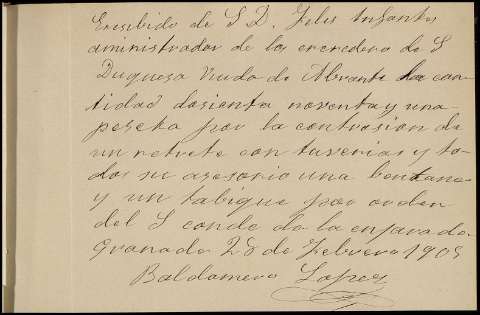 Erecibido de S D. Felis Infante
aministrador de los eredero de S
Duquesa Viuda de Abrante la can-
tidad dosienta noventa y una
peseta por la contrusion de
un retrete con tuverias y to-
dos su asesorio una bentana
y un tabique por orden
del S conde de la enjarada
Granada 28 de Febrero 1905
Baldomero Lopez